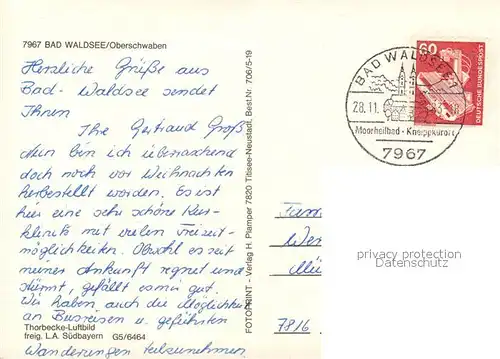 7967 BAD WALDSEE/Oberschwaben
Herzliche Grüße aus
Bad-Waldsee sendet
Ihnen
Ihre Gertraud Groß
Nun bin ich überraschend
doch noch vor Weihnachten
herbestellt worden. Es ist
hier eine sehr schöne Kur-
klinik mit vielen Freizeit-
möglichkeiten. Obwohl es seit
meiner Ankunft regnet und
stürmt, gefällt es mir gut.
Wir haben auch die Möglichkeit
an Busreisen u. geführten
Wanderungen teilzunehmen.
Thorbecke-Luftbild
freig. L.A. Südbayern G5/6464
FOTOPRINT - Verlag H. Plamper 7820 Titisee-Neustadt, Best.Nr. 706/5-19
BAD WALDSEE 1
28.11.
Moorheilbad - Kneippkurort
7967
60
DEUTSCHE BUNDESPOST
Fam
7816
privacy protection
www.oldthing.com